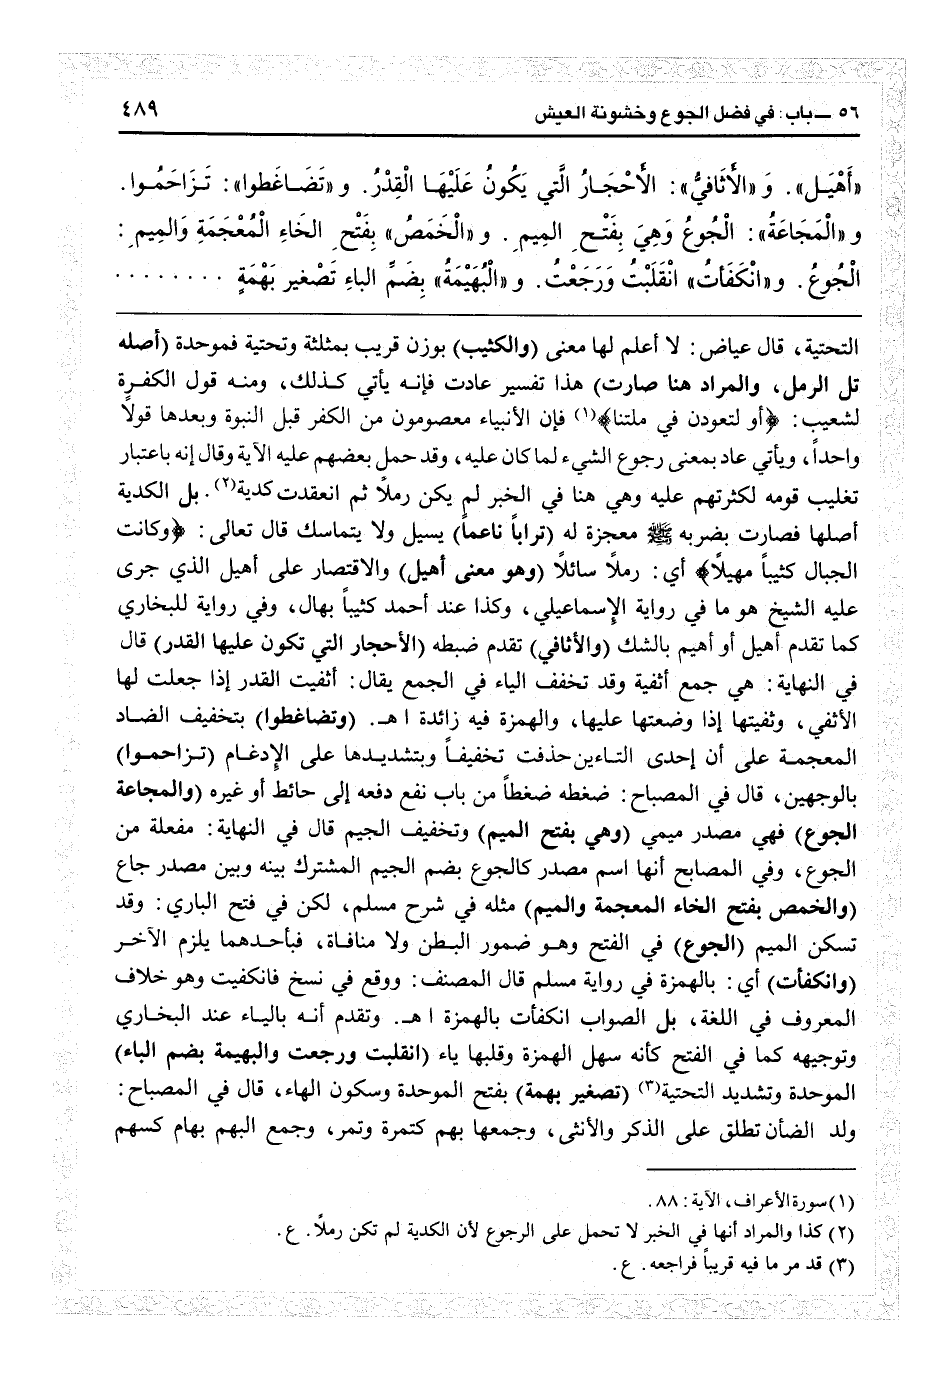 ٥٦ ــ باب: في فضل الجوع وخشونة العيش
٤٨٩
«أَهْيَـل». وَ «الأَثَافيُّ»: الأَحْجَـارُ الَّتي يَكُونُ عَلَيْهَـا الْقِدْرُ. و «تَضَـاغَطوا»: تَـزَاحَمُـوا.
و «الْمَجَاعَةُ»: الْجُوعُ وَهِيَ بِفَتْـحِ الميمِ. و «الْخَمَصُ» بِفَتْحِ الخَاءِ الْمُعْجَمَةِ وَالمِيمِ:
الْجُوعُ. و «انْكَفَأتُ» انْقَلَبْتُ وَرَجَعْتُ. و «الْبُهَيْمَةُ» بِضَمِّ الباءِ تَصْغير بَهْمَةٍ ........
التحتية، قال عياض: لا أعلم لها معنى (والكثيب) بوزن قريب بمثلثة وتحتية فموحدة (أصله
تل الرمل، والمراد هنا صارت) هذا تفسير عادت فإنـه يأتي كـذلك، ومنـه قول الكفـرة
لشعيب: ﴿أو لتعودن في ملتنا﴾(١) فإن الأنبياء معصومون من الكفر قبل النبوة وبعدها قولاً
واحداً، ويأتي عاد بمعنى رجوع الشيء لما كان عليه، وقد حمل بعضهم عليه الآية وقال إنه باعتبار
تغليب قومه لكثرتهم عليه وهي هنا في الخبر لم يكن رملاً ثم انعقدت كدية(٢). بل الكدية
أصلها فصارت بضربه ﷺ معجزة له (تراباً ناعماً) يسيل ولا يتماسك قال تعالى: ﴿وكانت
الجبال كثيباً مهيلاً﴾ أي: رملاً سائلاً (وهو معنى أهيل) والاقتصار على أهيل الذي جرى
عليه الشيخ هو ما في رواية الإسماعيلي، وكذا عند أحمد كثيباً بهال، وفي رواية للبخاري
كما تقدم أهيل أو أهيم بالشك (والأثافي) تقدم ضبطه (الأحجار التي تكون عليها القدر) قال
في النهاية: هي جمع أثفية وقد تخفف الياء في الجمع يقال: أثفيت القدر إذا جعلت لها
الأثفي، وثفيتها إذا وضعتها عليها، والهمزة فيه زائدة ا هـ. (وتضاغطوا) بتخفيف الضـاد
المعجمـة على أن إحدى التـاءين حذفت تخفيفـاً وبتشديـدها على الإدغـام (تـزاحمـوا)
بالوجهين، قال في المصباح: ضغطه ضغطاً من باب نفع دفعه إلى حائط أو غيره (والمجاعة
الجوع) فهي مصدر ميمي (وهي بفتح الميم) وتخفيف الجيم قال في النهاية: مفعلة من
الجوع، وفي المصابح أنها اسم مصدر كالجوع بضم الجيم المشترك بينه وبين مصدر جاع
(والخمص بفتح الخاء المعجمة والميم) مثله في شرح مسلم، لكن في فتح الباري: وقد
تسكن الميم (الجوع) في الفتح وهـو ضمور البـطن ولا منافـاة، فبأحـدهما يلزم الآخـر
(وانكفأت) أي: بالهمزة في رواية مسلم قال المصنف: ووقع في نسخ فانكفيت وهو خلاف
المعروف في اللغة، بل الصواب انكفأت بالهمزة ا هـ. وتقدم أنـه باليـاء عند البخـاري
وتوجيهه كما في الفتح كأنه سهل الهمزة وقلبها ياء (انقلبت ورجعت والبهيمة بضم الباء)
الموحدة وتشديد التحتية(٣) (تصغير بهمة) بفتح الموحدة وسكون الهاء، قال في المصباح:
ولد الضأن تطلق على الذكر والأنثى، وجمعها بهم كتمرة وتمر، وجمع البهم بهام كسهم
(١) سورة الأعراف، الآية: ٨٨.
(٢) كذا والمراد أنها في الخبر لا تحمل على الرجوع لأن الكدية لم تكن رملاً. ع.
(٣) قد مر ما فيه قريباً فراجعه. ع.